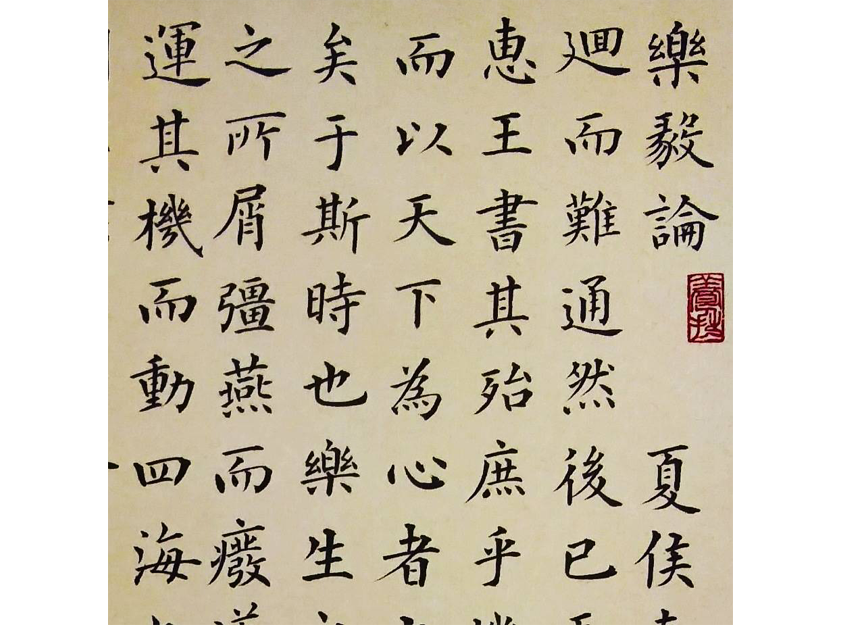 樂毅論 夏侯
迴而難通然後已
惠王書其殆庶乎
而以天下為心者
矣于斯時也樂生
之所屑彊燕而癈
運其機而動四海